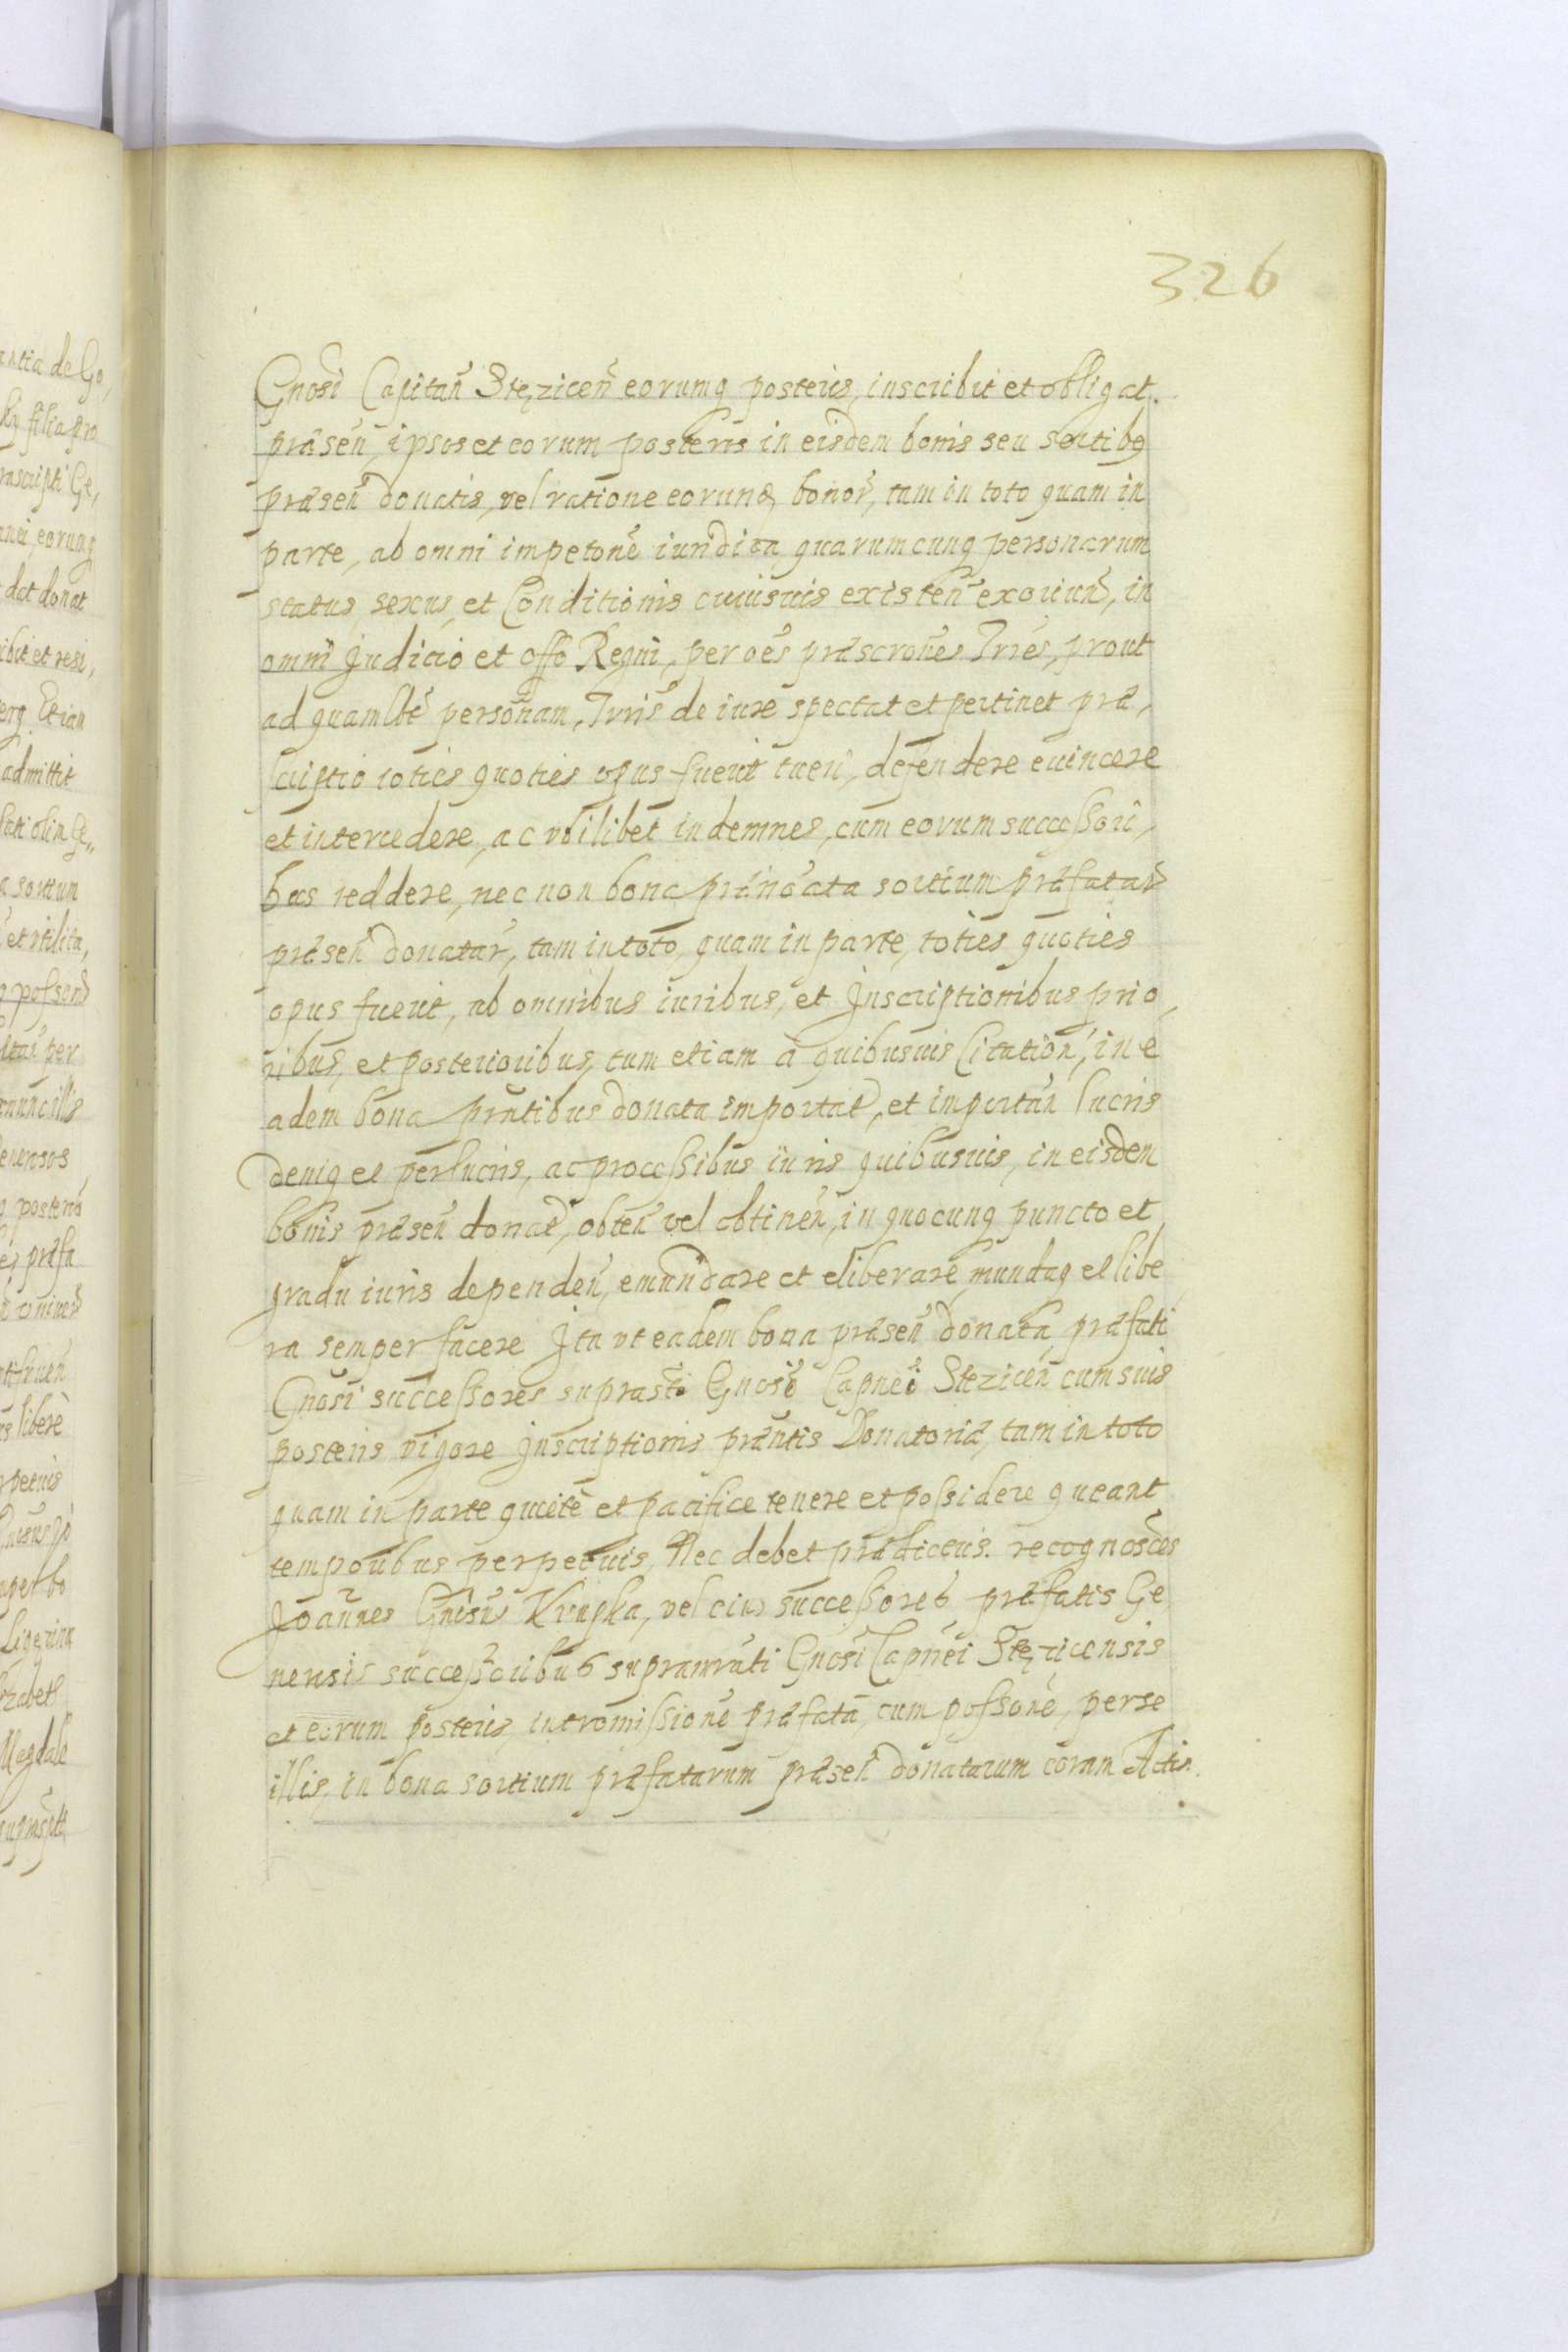 326
Gnosi Capitan Stęzicen eorumq posteris, inscribit et obligat.
præsen, ipsos et eorum posteris in eisdem bonis seu sortibq
præsen donatis, vel ratione eorund, bonor, tam in toto quam in
parte, ab omni impetone iuridica quarumcunq personarum
status, sexus, et Conditionis cuiusuis existen exoriun, in
omni Judicio et offo Regni, per oes præscrones Trres, prout
ad quamlbt personam, Iuris de iure spectat et pertinet præ,
scriptio toties quoties opus fuerit tueri, defendere euincere
et intercedere, ac vbilibet indemnes, cum eorum successori,
bus reddere, nec non bona prænoata sortium præfatar
præsen donatar, tam in toto, quam in parte, toties quoties
opus fuerit, ab omnibus iuribus, et Inscriptionibus prio,
ribus, et posterioribus, tum etiam à quibusuis Citation, in e
adem bona prntibus donata importat, et importan lucris
deniq et perlucris, ac processibus iuris quibusuis, in eisdem
bonis præsen donat, obten vel obtinen, in quocunq puncto et
gradu iuris dependen, emundare et eliberare, mundaq et libe
ra semper facere Ita vt eadem bona præsen donata, præfati
Gnosi successores suprasti Gnosi Capnei Stezicen cum suis
posteris vigore Inscriptionis præntis Donatoriæ, tam in toto
quam in parte quietè et pacifice tenere et possidere queant
temporibus perpetuis, Nec debet prædictus. recognosces
Joannes Gnosus Krupka, vel eius successores præfatis Ge
nerosis successoribus supranrati Gnosi Capnei Stęzicensis
et eorum posteris, intromissionē præfatā, cum possone, per se
illis, in bona sortium præfatarum præsen donatarum coram Actis.
antia de Go,
filia pro
rascripti Ge,
eorumq
dat donat
ibit et resi,
erq Etiam
admittit
olim Ge,,
a sortium
et vtilita,
per
nunc illis
q posteris
præfa
libere
petuis
per bo
Magdale